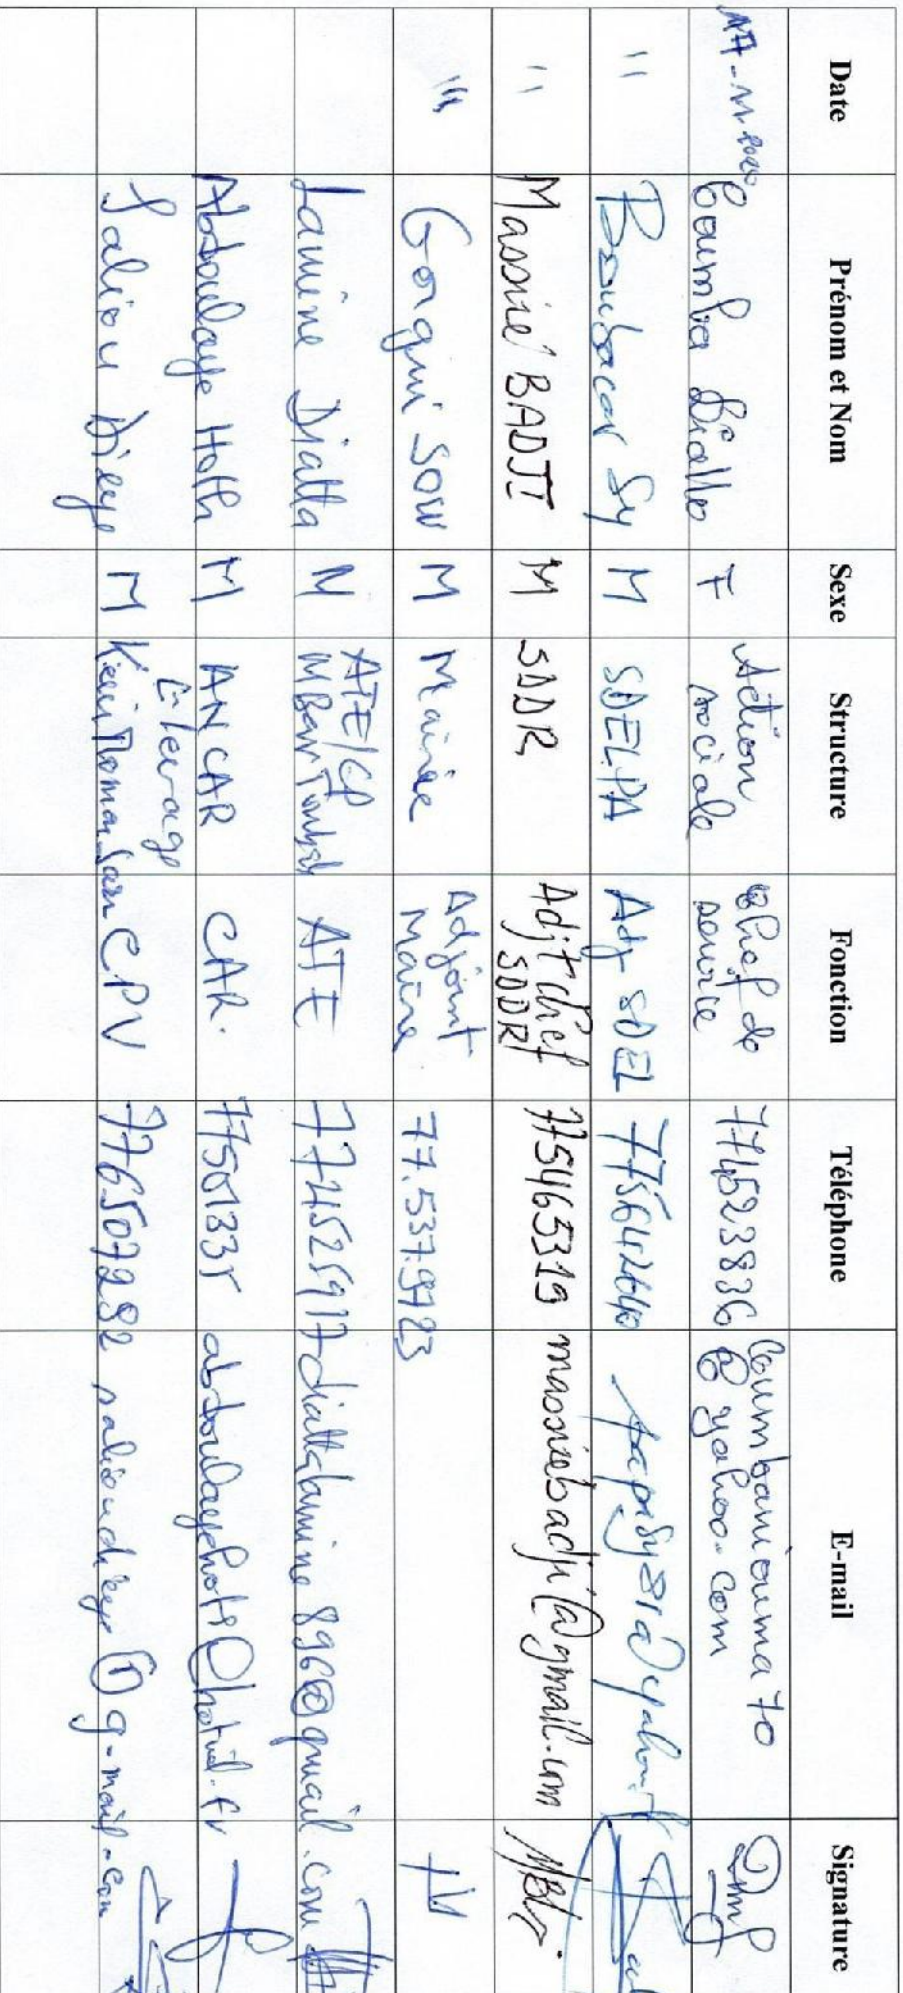 Date Prénom et Nom Sexe Structure Fonction Téléphone E-mail Signature
Coumba Diallo F Action sociale chef de service 774523836 Coumbaniouma70@yahoo.com
" Boubacar Sy M SDELPA Adj SDEL 775642640
" Massire BADJI M SDDR Adjt chef SDDR 775465319 massirebadji@gmail.com
" Gorgui SOW M Mairie Adjoint Maire 77.537.97.23
Lamine Diatta M ATE/CP ATE 774525917 diattalamine896@gmail.com
Abdoulaye Hoth M ANCAR CAR. 77501335 abdoulayehoth@hotmail.fr
Saliou Dièye M Elevage CPV 776507282 salioudieye@g-mail.com